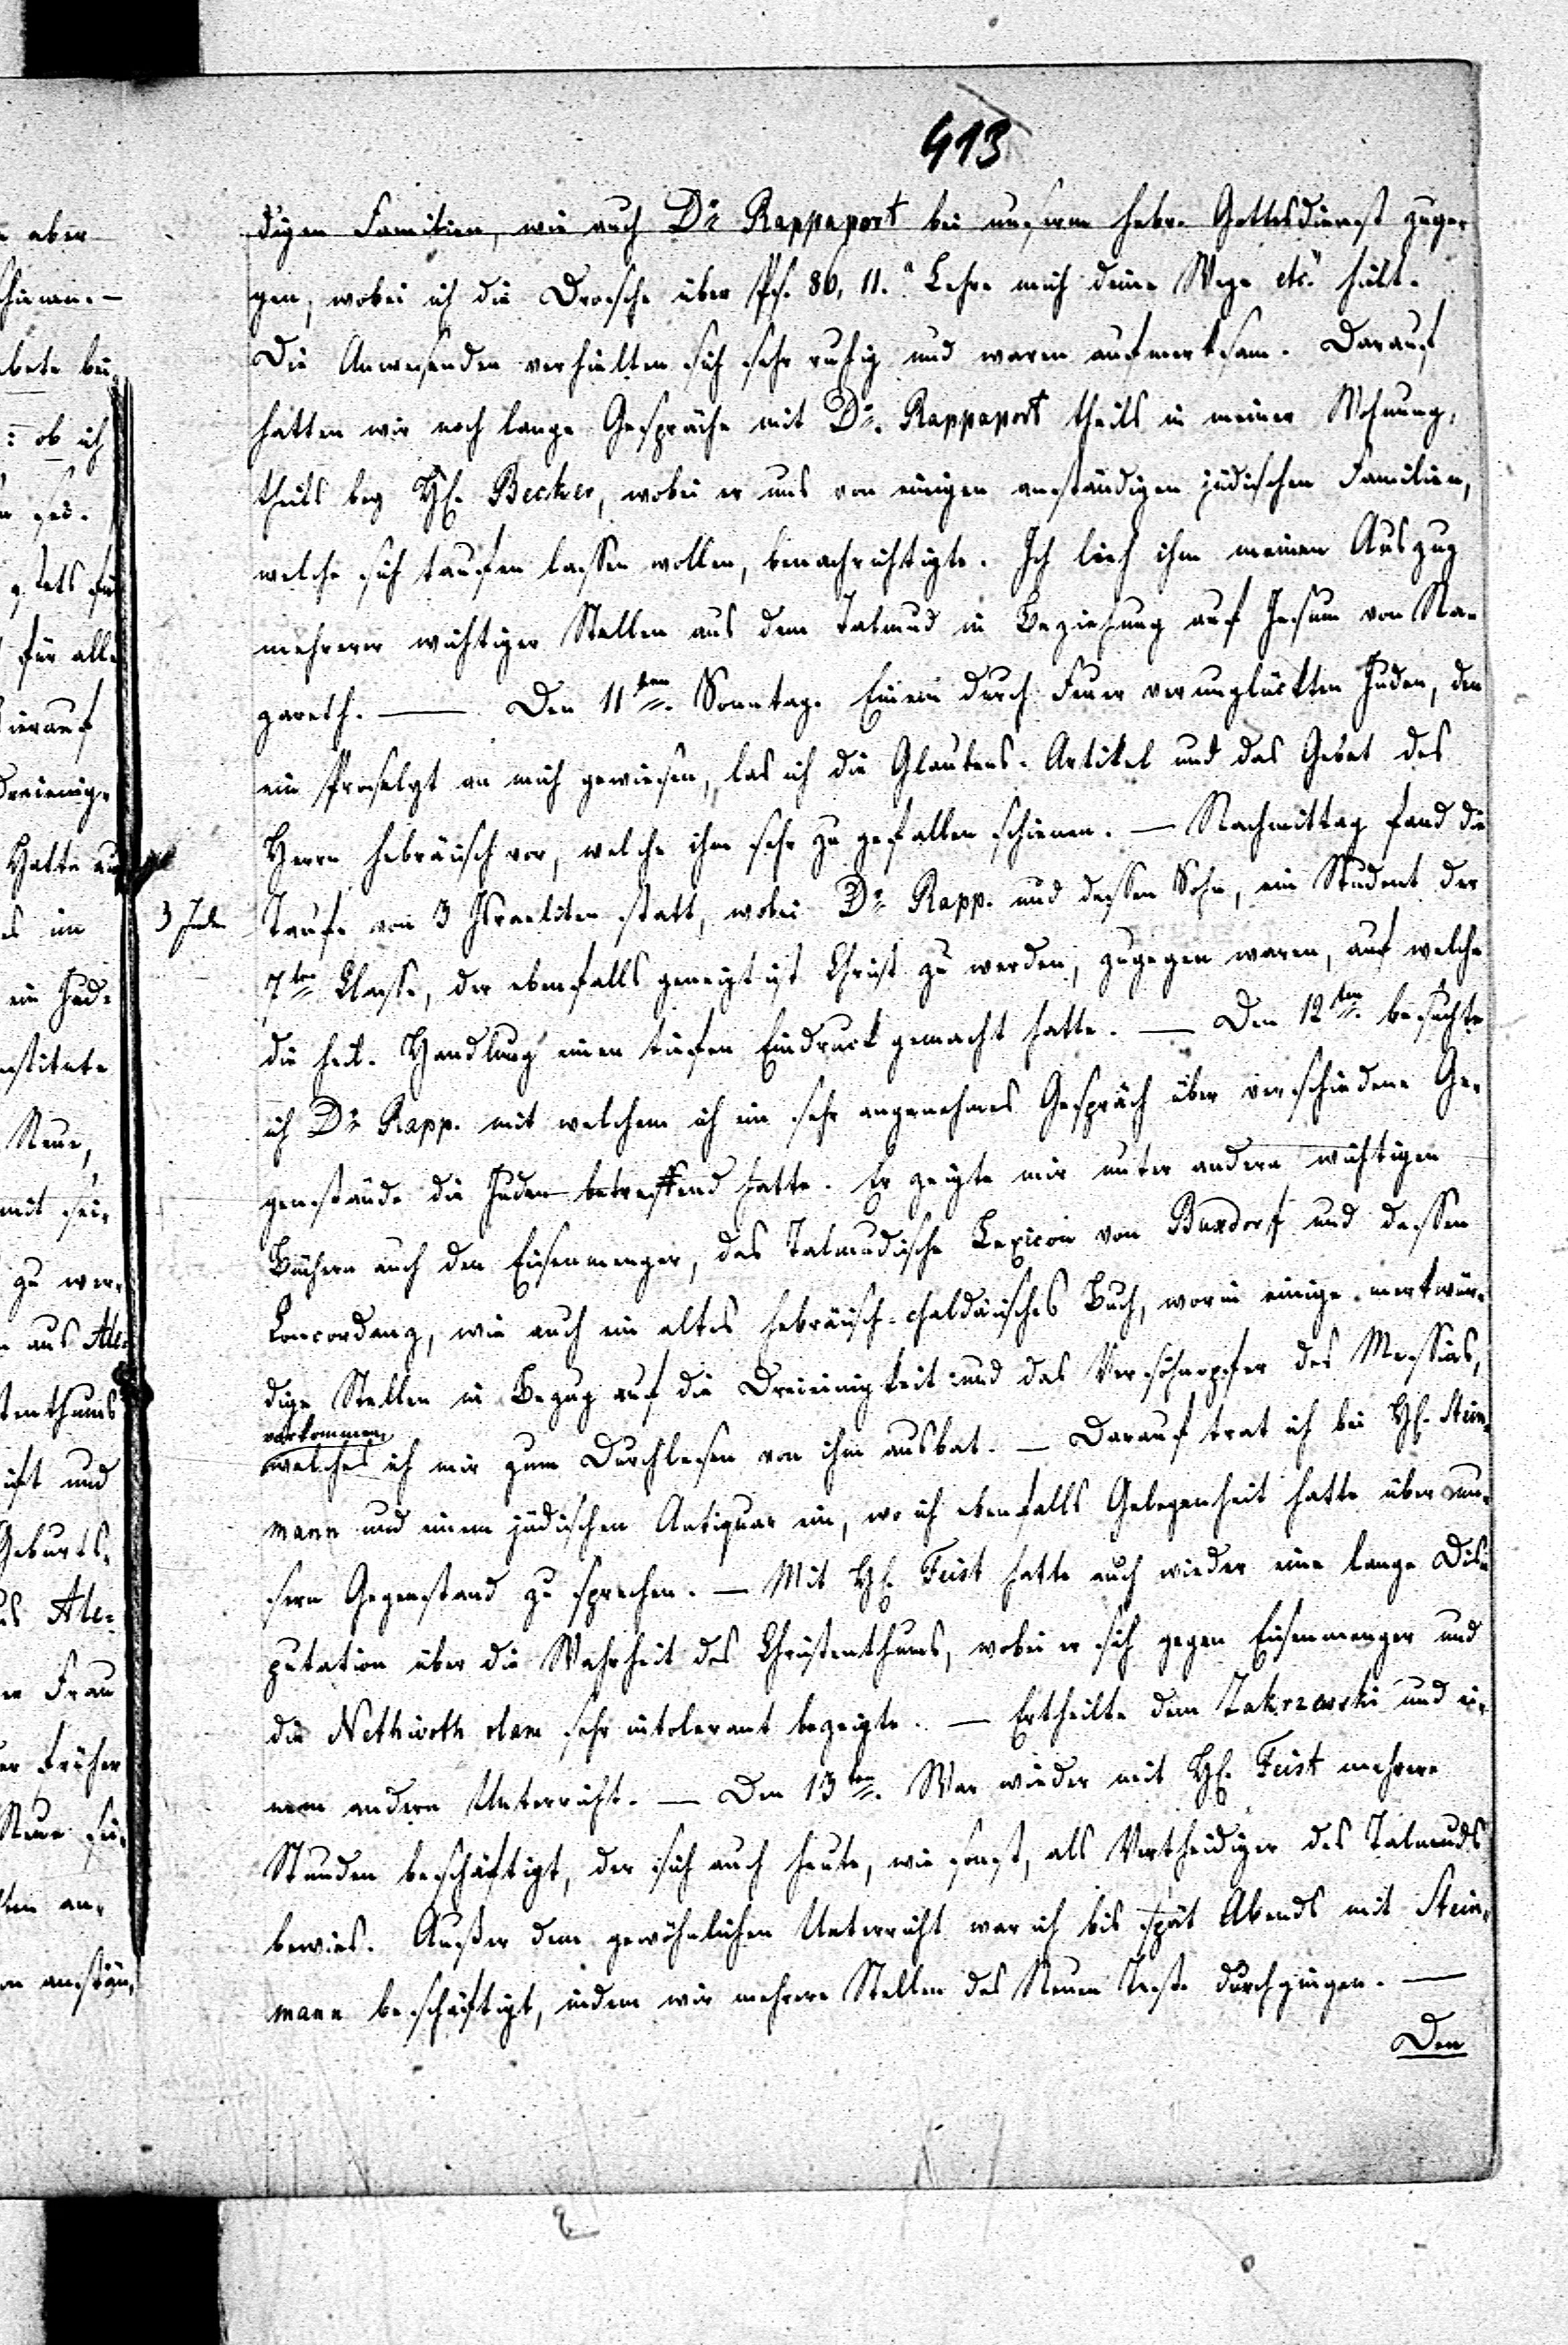 413
digen Familien, wie auch Dr. Rappaport bei unserm hebr. Gottesdienst zuge-
gen, wobei ich die Drosche über Ps. 86, 11. "Lehre mich deine Wege etc." hielt.
Die Anwesenden verhielten sich sehr ruhig und waren aufmerksam. Darauf
hatten wir noch lange Gespräche mit Dr. Rappaport theils in meiner Wohnung,
theils bey H. Becker, wobei er uns von einigen anständigen jüdischen Familien,
welche sich taufen lassen wollen, benachrichtigte. Ich lieh ihm meinen Auszug
mehrerer wichtiger Stellen aus dem Talmud in Beziehung auf Jesum von Na-
zareth. — Den 11ten. Sonntag. Einem durch Feuer verunglückten Juden, den
ein Proselyt an mich gewiesen, las ich die Glaubens-Artikel und das Gebet des
Herrn hebräisch vor, welche ihm sehr zu gefallen schienen. — Nachmittag fand die
3 Juden
Taufe von 3 Israeliten statt, wobei Dr. Rapp. und dessen Sohn, ein Student der
7ten Classe, der ebenfalls geneigt ist Christ zu werden, zugegen waren, auf welche
die heil. Handlung einen tiefen Eindruck gemacht hatte. — Den 12ten. besuchte
ich Dr. Rapp. mit welchem ich ein sehr angenehmes Gespräch über verschiedene Ge-
genstände die Juden betreffend hatte. Er zeigte mir unter andern wichtigen
Büchern auch den Eisenmenger, das Talmudische Lexicon von Buxdorf und dessen
Concordanz, wie auch ein altes hebräisch-chaldäisches Buch, worin einige merkwür-
dige Stellen in Bezug auf die Dreieinigkeit und das Versöhnopfer des Messias,
vorkommen
welches ich mir zum Durchlesen von ihm ausbat. — Darauf trat ich bei H. Stein-
mann und einem jüdischen Antiquar ein, wo ich ebenfalls Gelegenheit hatte über un-
sern Gegenstand zu sprechen. — Mit H. Feist hatte auch wieder eine lange Dis-
putation über die Wahrheit des Christenthums, wobei er sich gegen Eisenmenger und
die Nethivoth olam sehr intolerant bezeigte. — Ertheilte dem Zakrzewski und ei-
nem andern Unterricht. — Den 13ten. War wieder mit H. Feist mehrere
Stunden beschäftigt, der sich auch heute, wie sonst, als Vertheidiger des Talmuds
bewies. Außer dem gewöhnlichen Unterricht war ich bis spät Abends mit Stein-
mann beschäftigt, indem wir mehrere Stellen des Neuen Test. durchgingen. —
Den